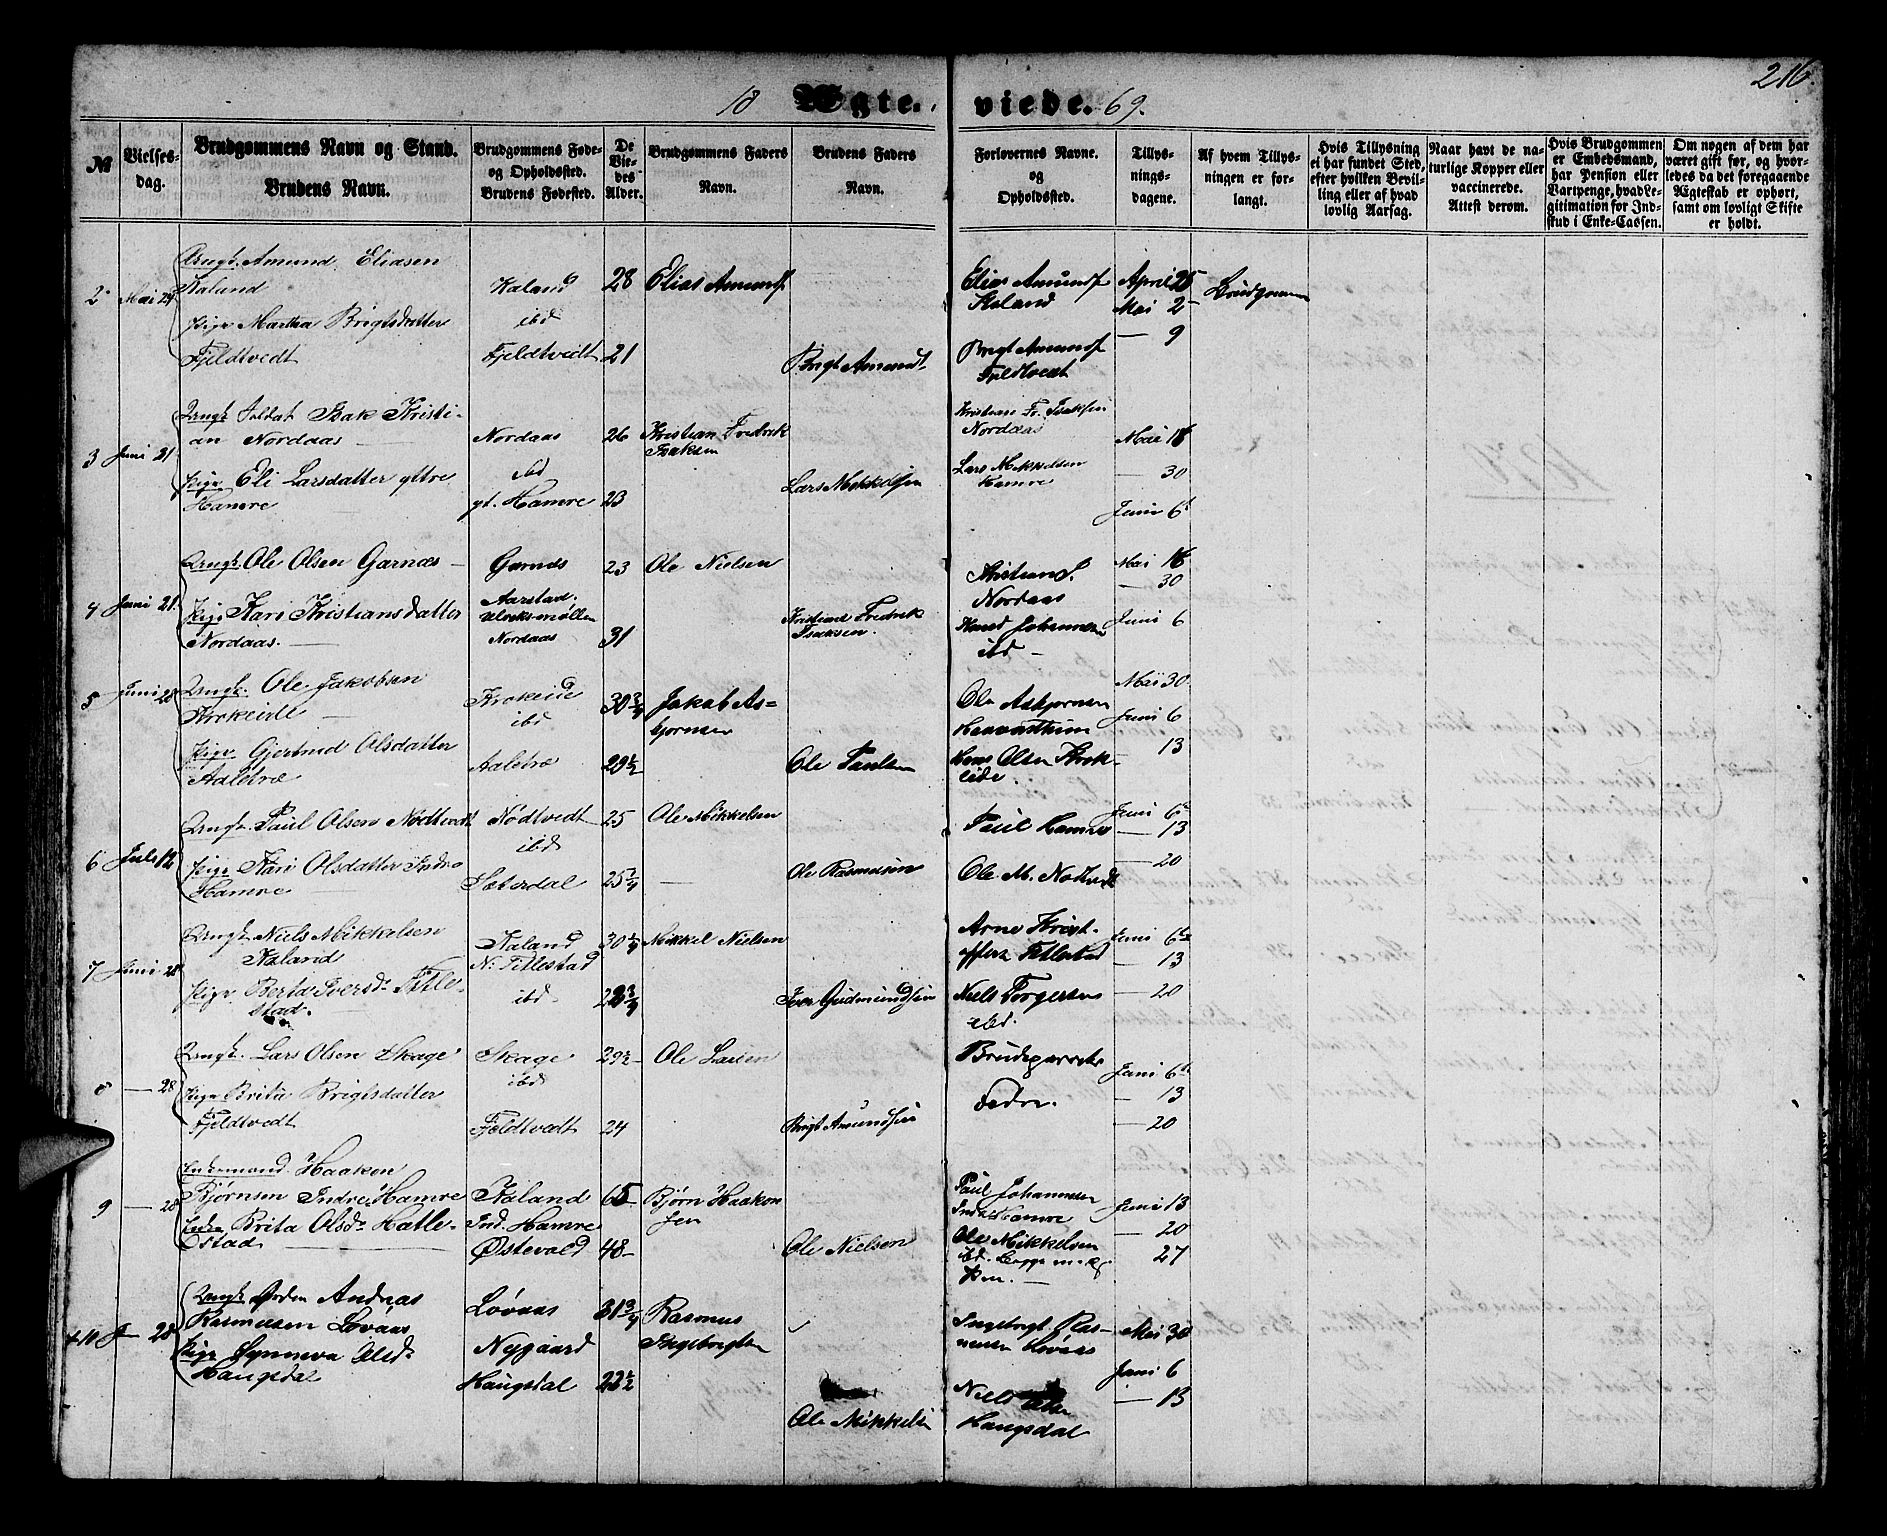 216
18 Ægte- viede. 69.
№
Vielses-
dag.
Brudgommens Navn og Stand.
Brudens Navn.
Brudgommens Føde-
og Opholdssted.
Brudens Fødested.
De
Vie-
des
Alder.
Brudgommens Faders
Navn.
Brudens Faders
Navn.
Forlovernes Navne.
og
Opholdssted.
Tillys-
nings-
dagene.
Af hvem Tillys-
ningen er for-
langt.
Hvis Tillysning
ei har fundet Sted,
efter hvilken Bevil-
ling eller af hvad
lovlig Aarsag.
Naar havt de na-
turlige Kopper eller
vaccinerede.
Attest derom.
Hvis Brudgommen
er Embedsmand,
har Pension eller
Vartpenge, hvad Le-
gitimation for Ind-
skud i Enke-Cassen.
Om nogen af dem har
været gift før, og hvor-
ledes da det foregaaende
Ægteskab er ophørt,
samt om lovligt Skifte
er holdt.
2 Mai 24
Ungk. Amund Eliasen
Kaland
Pige Martha Brigtsdatter
Fjeldtvedt
Kaland
ibd
Fjeldtvedt
28
21
Elias Amunds
Brigt Amunds
Elias Amunds
Kaland
Brigt Amunds
Fjeldtvedt
April 25
Mai 2
— 9
Brudgommen
3 Juni 21
Ungk Soldat Isak Kristi-
an Nordaas
Pige Eli Larsdatter yttre
Hamre
Nordaas
ibd
yt. Hamre
26
23
Kristian Fredrik
Isaksen
Lars Mikkelsen
Kristian Fr. Isaksen
Nordaas
Lars Mikkelsen
Hamre
Mai 16
— 30
Juni 6
4 Juni 21
Ungk. Ole Olsen Garnæs
Pige Kari Kristiansdatter
Nordaas
Garnæs
Aarstad.
Nordaas
23
31
Ole Nielsen
Kristian Fredrik
Isaksen.
Kristian
Nordaas
Knud Johannesen
ibd
Mai 16
— 30
Juni 6
5 Juni 28
Ungk. Ole Jakobsen
Krokeide
Pige Gjertrud Olsdatter
Aaletræ
Krokeide
ibd
Aaletræ
30 3/4
29 1/2
Jakob As-
bjørnsen
Ole Paulsen
Ole Asbjørnsen
Hans Olsen Krok-
eide.
Mai 30
Juni 6
— 13
6 Juli 12
Ungk. Paul Olsen Nødtvedt
Pige Kari Olsdatter Indre
Hamre
Nødtvedt
ibd
Sæterdal
25
25 1/4
Ole Mikkelsen
Ole Rasmussen
Paul Hamre
Ole M. Nødtvedt
Juni 6
— 13
— 20
7 Juni 28
Ungk Niels Mikkelsen
Kaland
Pige Berta Iversd. Title-
stad.
Kaland
N. Titlestad
ibd
30 1/4
28 3/4
Mikkel Nielsen
Iver Gudmundsen
Arne Krist-
offersen Titlestad
Niels Torgersen
ibd.
Juni 6
— 13
— 20
8 — 28
Ungk. Lars Olsen Skage
Pige Brita Brigtsdatter
Fjeldtvedt
Skage
ibd
Fjeldtvedt
29 1/2
24
Ole Larsen
Brigt Amundsen
Brudeparrets
Fædre.
Juni 6
— 13
— 20
9 — 28
Enkemand Haakon
Bjørnsen Indre Hamre
Enke Brita Olsd. Hatle-
stad
Kaland
Ind. Hamre
Østevold
65
48
Bjørn Haakon
sen
Ole Nielsen
Paul Johannesen
Indre Hamre
Ole Mikkelsen
ibd.
Juni 13
— 20
27
10 — 28
Ungk. Anders Andreas
Rasmussen Løvaas
Pige Synneva Olsd.
Haugsdal
Løvaas
Nygaard
Haugsdal
31 3/4
22 1/2
Rasmus
Ingebrigtsen
Ole Mikkelsen
Ingebrigt Ras-
mussen Løvaas
Niels Olsen
Haugsdal
Mai 30
Juni 6
— 13